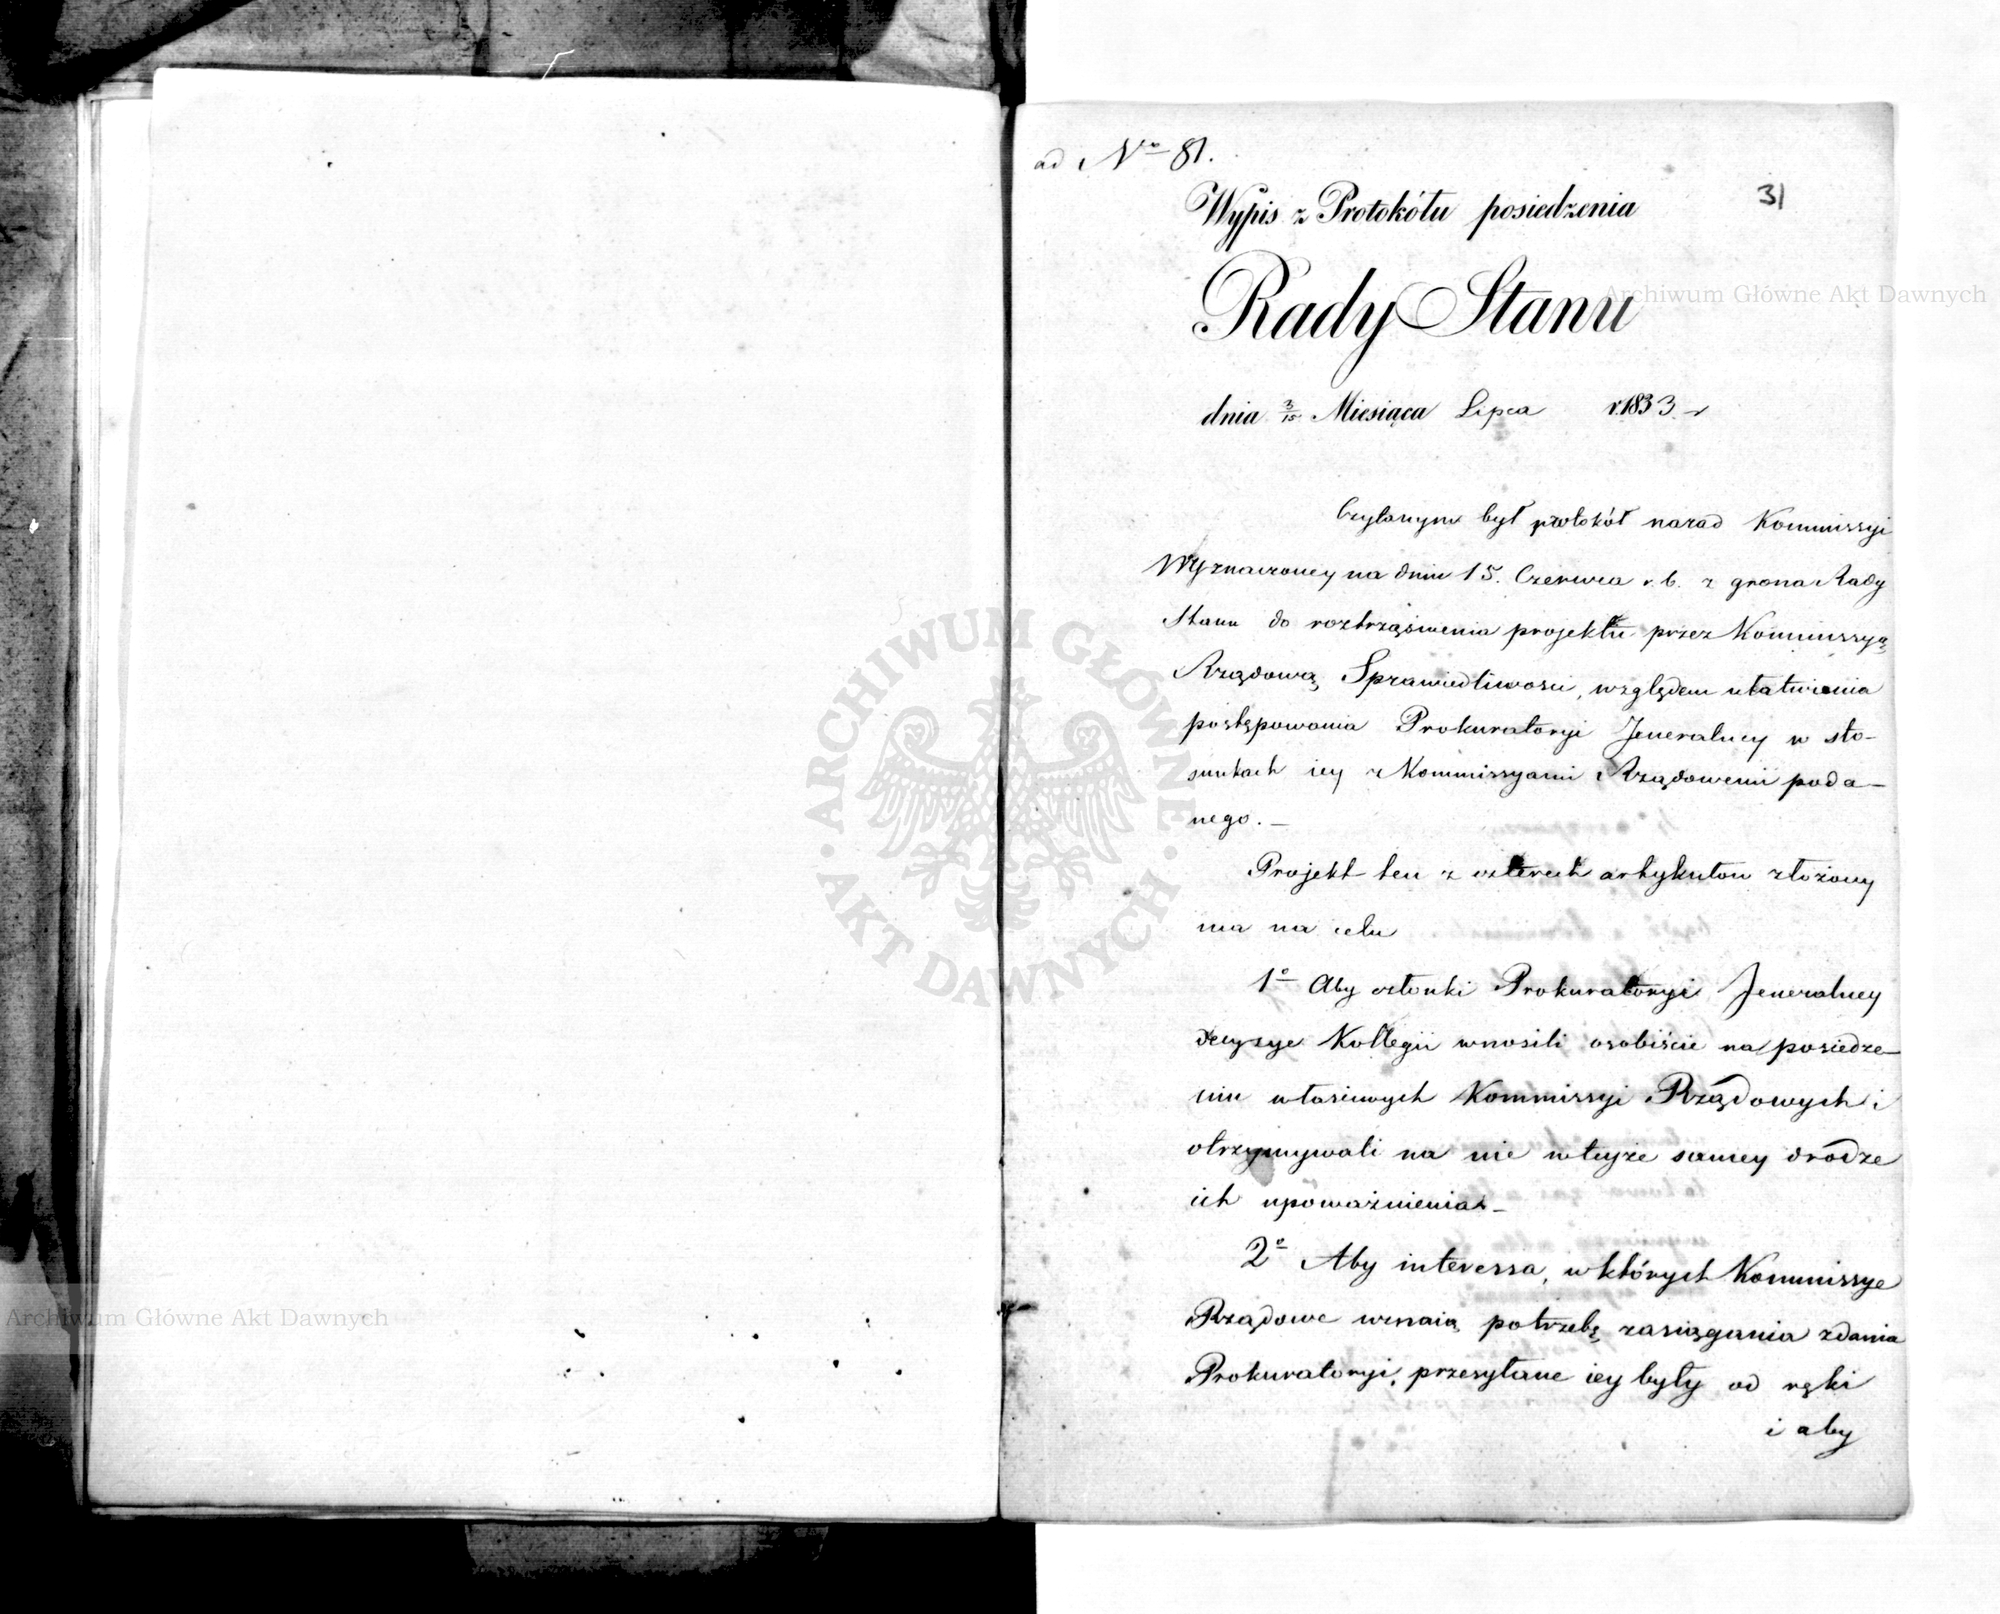 ad Nro 81.
31
Wypis z Protokółu posiedzenia
Rady Stanu
dnia 3/15 Miesiąca Lipca r. 1833.
Czytanym był protokół narad Kommissyi
Wyznaczoney na dniu 15. Czerwca r. b. z grona Rady
Stanu do roztrząśnienia projektu przez Kommissyą
Rządową Sprawiedliwości, względem ułatwienia
postępowania Prokuratoryi Jeneralney w sto-
sunkach iey z Kommissyami Rządowemi poda-
nego. –
Projekt ten z czterech artykułów złożony
ma na celu
1o Aby członki Prokuratoryi Jeneralney
decyzye Kollegii wnosili osobiście na posiedze-
niu właściwych Kommissyi Rządowych i
otrzymywali na nie w teyże samey drodze
ich upoważnienia –
2o Aby interessa, w których Kommissye
Rządowe uznaią potrzebę zasiągania zdania
Prokuratoryi, przesyłane iey były od ręki
i aby
ARCHIWUM GŁÓWNE AKT DAWNYCH
Archiwum Główne Akt Dawnych
Archiwum Główne Akt Dawnych